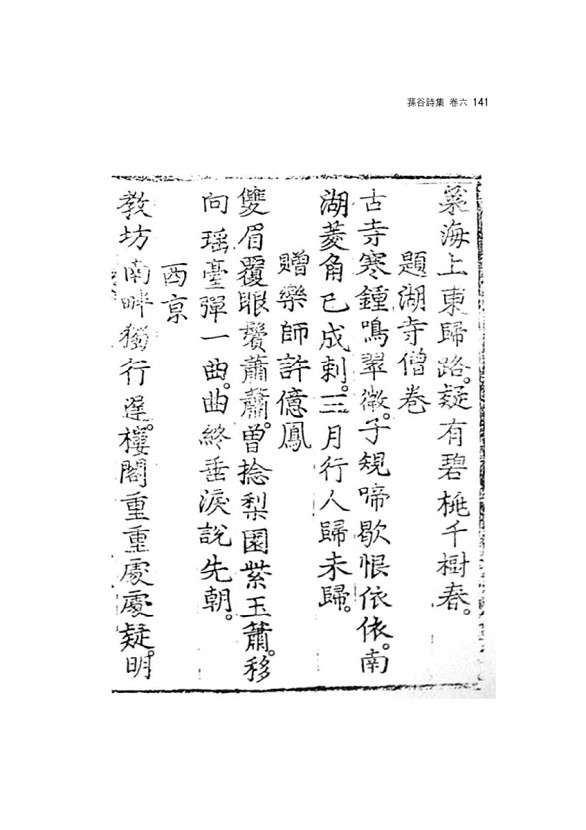 蓀谷詩集 卷六 141
萊海上東歸路。疑有碧桃千樹春。
題湖寺僧卷
古寺寒鍾鳴翠微。子規啼歇恨依依。南
湖菱角已成刺。三月行人歸未歸。
贈樂師許億鳳
雙眉覆眼鬢蕭蕭。曾捻梨園紫玉蕭。移
向瑤臺彈一曲。曲終垂淚說先朝。
西京
教坊南畔獨行遲。樓閣重重處處疑。明